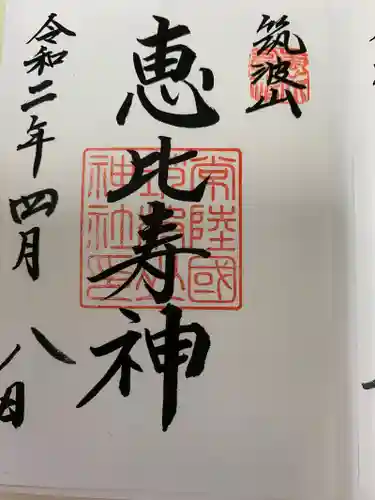 筑波山
恵比寿神
常陸國
神社
令和二年四月八日